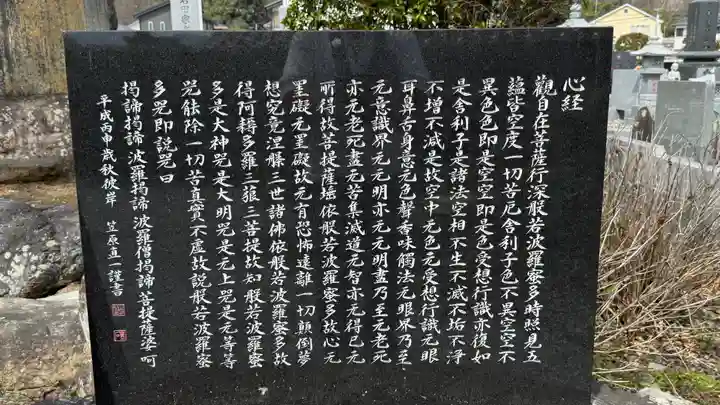 心経
觀自在菩薩行深般若波羅蜜多時照見五
蘊皆空度一切苦厄舎利子色不異空空不
異色色即是空空即是色受想行識亦復如
是舎利子是諸法空相不生不滅不垢不淨
不增不減是故空中元色元受想行識元眼
耳鼻舌身意元色聲香味觸法元眼界乃至
元意識界元元明亦元元明盡乃至元老死
亦元老死盡元苦集滅道元智亦元得已元
所得故菩提薩埵依般若波羅蜜多故心元
罣礙元罣礙故元有恐怖遠離一切顛倒夢
想究竟涅槃三世諸佛依般若波羅蜜多故
得阿耨多羅三藐三菩提故知般若波羅蜜
多是大神咒是大明咒是元上咒是元等等
咒能除一切苦真實不虚故説般若波羅蜜
多咒即説咒曰
揭諦揭諦波羅揭諦 波羅僧揭諦菩提薩婆呵
平成丙申歳秋彼岸 笠原直一謹書